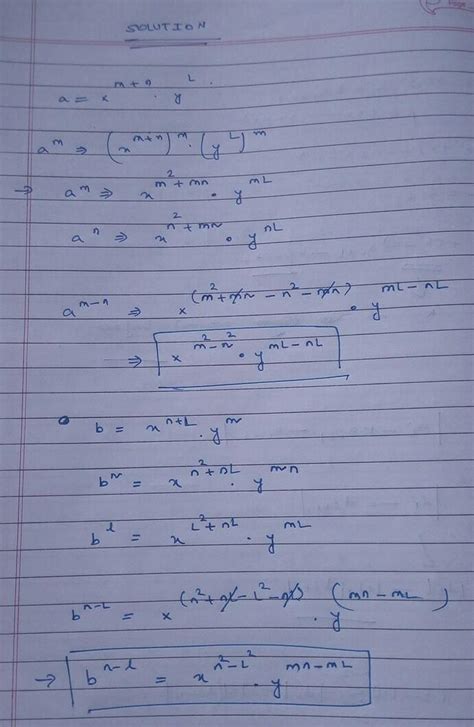 SOLUTION
a = x^{m+n} . y^{L} .
a^{m} ⇒ (x^{m+n})^{m} . (y^{L})^{m}
→ a^{m} ⇒ x^{m^2+mn} . y^{mL}
a^{n} ⇒ x^{n^2+mn} . y^{nL}
a^{m-n} ⇒ x^{(m^2+mn-n^2-mn)} . y^{mL-nL}
⇒ x^{m^2-n^2} . y^{mL-nL}
• b = x^{n+L} . y^{m}
b^{n} = x^{n^2+nL} . y^{mn}
b^{l} = x^{L^2+nL} . y^{mL}
b^{n-L} = x^{(n^2+nl-L^2-nl)} . y^{(mn-mL)}
→ b^{n-l} = x^{n^2-L^2} . y^{mn-mL}